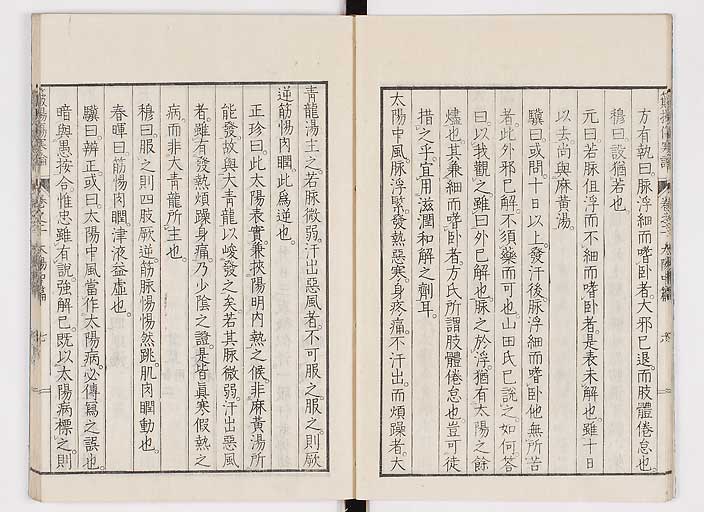 方有執曰。脉浮細而嗜卧者。大邪已退。而肢體倦怠也。
穆曰。設猶若也。
元曰。若脉但浮而不細而嗜卧者。是表未解也。雖十日
以去。尚與麻黃湯。
驥曰。或問十日以上。發汗後。脉浮細而嗜卧。他無所苦
者。此外邪已解。不須藥而可也。山田氏已說之。如何。答
曰。以我觀之。雖曰外已解也。脉之於浮。猶有太陽之餘
燼也。其兼細而嗜卧者。方氏所謂肢體倦怠也。豈可徒
措之乎。宜用滋潤和解之劑耳。
太陽中風。脉浮緊。發熱惡寒。身疼痛。不汗出。而煩躁者。大
青龍湯主之。若脉微弱。汗出惡風者。不可服之。服之則厥
逆。筋惕肉瞤。此爲逆也。
正珍曰。此太陽表實。兼挾陽明內熱之候。非麻黃湯所
能發。故與大青龍以峻發之矣。若其脉微弱。汗出惡風
者。雖有發熱煩躁身痛。乃少陰之證。是皆眞寒假熱之
病。而非大青龍所主也。
穆曰。服之則四肢厥逆。筋脉惕惕然跳。肌肉瞤動也。
春暉曰。筋惕肉瞤。津液益虛也。
驥曰。辨正。或曰。太陽中風。當作太陽病。必傳寫之誤也。
暗與愚按合。惟忠雖有說。強解已。既以太陽病標之。則
卷之二 太陽中篇
七